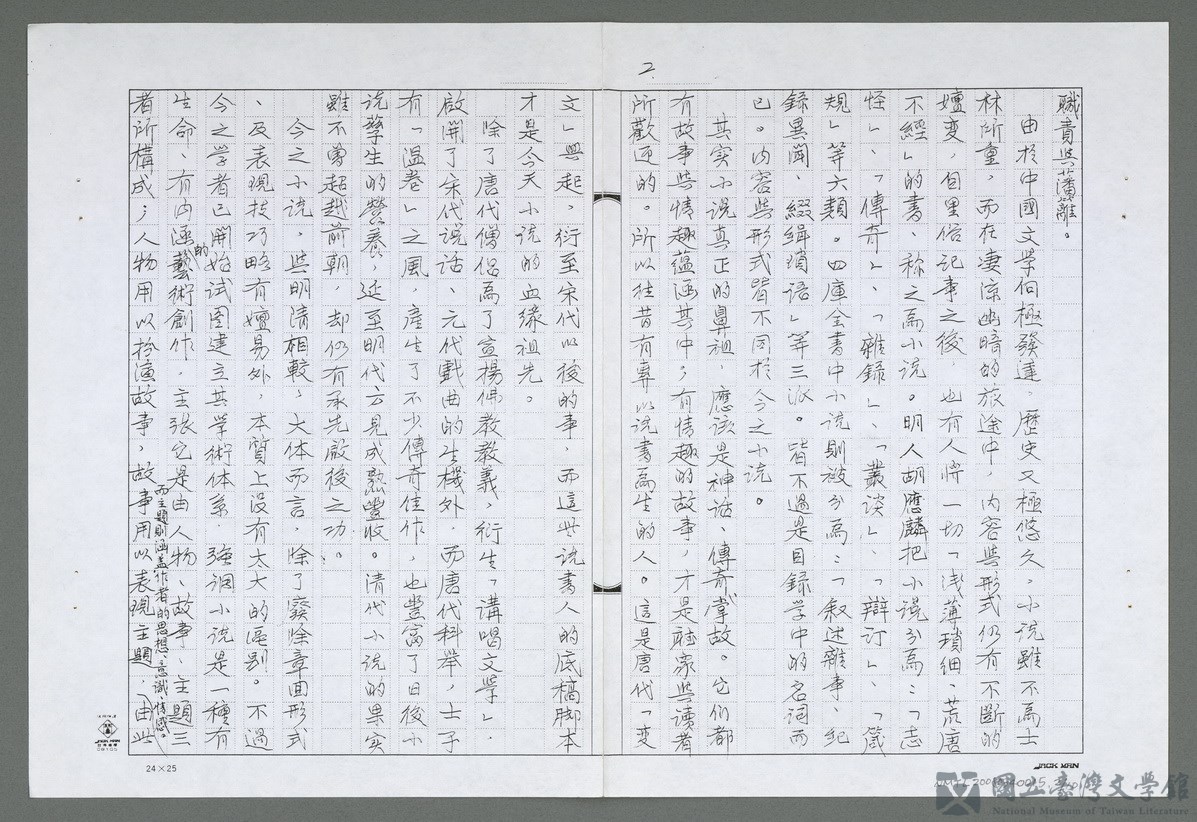 2
職責與藩籬。
由於中國文学何極發達，歷史又極悠久，小説雖不為士
林所重，而在凄涼幽暗的旅途中，内容與形式仍有不断的
嬗变，但里俗記事之後，也有人將一切「浅薄瑣細、荒唐
不經」的書、称之為小説。明人胡應麟把小説分為：「志
怪」、「傳奇」、「雜録」、「叢談」、「辯訂」、「箴
規」等六類。四庫全書中小説則被分為：「叙述雜事、紀
録異聞、綴緝瑣語」等三派。皆不過是目録学中的名詞而
已。内容與形式皆不同於今之小説。
其实小説真正的鼻祖，應該是神話、傳奇掌故。它们都
有故事與情趣蕴涵其中；有情趣的故事，才是聽衆與讀者
所歡迎的。所以往昔有專以説書為生的人。這是唐代「变
文」興起，衍至宋代以後的事，而這些説書人的底稿脚本
才是今天小説的血缘祖先。
除了唐代僧侣為了宣揚佛教教義，衍生「講唱文学」，
啟開了宋代説話、元代戲曲的生機外，而唐代科举，士子
有「温卷」之風，產生了不少傳奇佳作，也豐富了日後小
説孳生的營養，延至明代云見成熟豐收。清代小説的果实
雖不曾超越前朝，却仍有承先啟後之功。
今之小説，與明清相較，大体而言，除了廢除章回形式
、及表現技巧略有嬗易外，本質上没有太大的區别。不过
今之学者已開始試图建立其学術体系，強調小説是一種有
生命、有内涵的藝術創作，主張它是由人物、故事、主題三
者所構成；人物用以扮演故事，故事用以表現主題，而主題則涵盖作者的思想、意識、情感。由此
24×25
JACK MAN
國立臺灣文學館
National Museum of Taiwan Literature